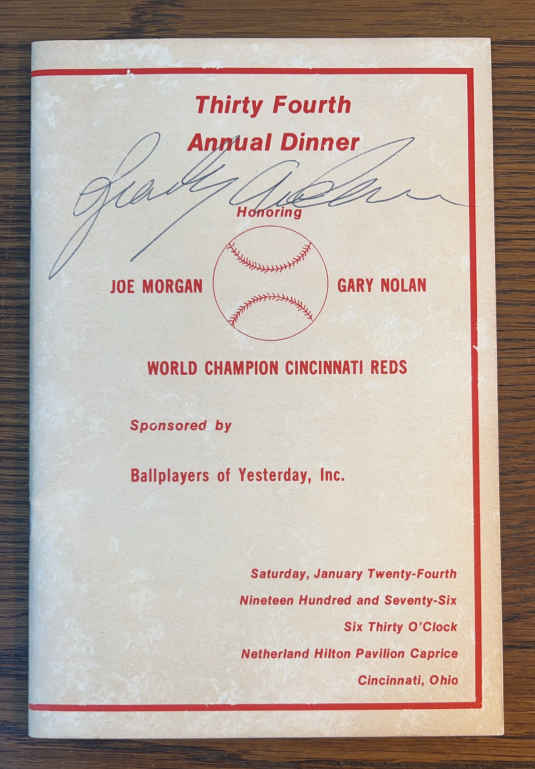 Thirty Fourth
Annual Dinner
Honoring
JOE MORGAN GARY NOLAN
WORLD CHAMPION CINCINNATI REDS
Sponsored by
Ballplayers of Yesterday, Inc.
Saturday, January Twenty-Fourth
Nineteen Hundred and Seventy-Six
Six Thirty O'Clock
Netherland Hilton Pavilion Caprice
Cincinnati, Ohio